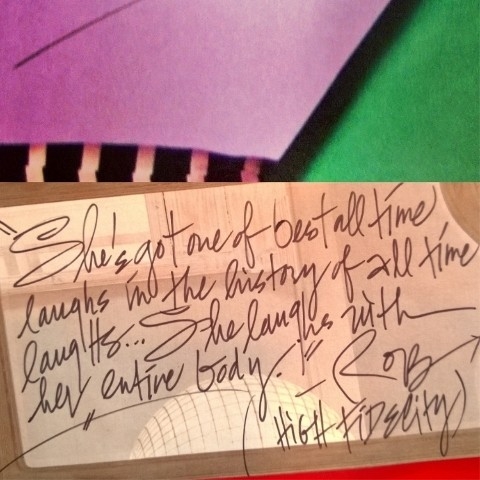 "She's got one of best all time
laughs in the history of all time
laughs... She laughs with
her entire body."
- Rob
(HIGH FIDELITY)